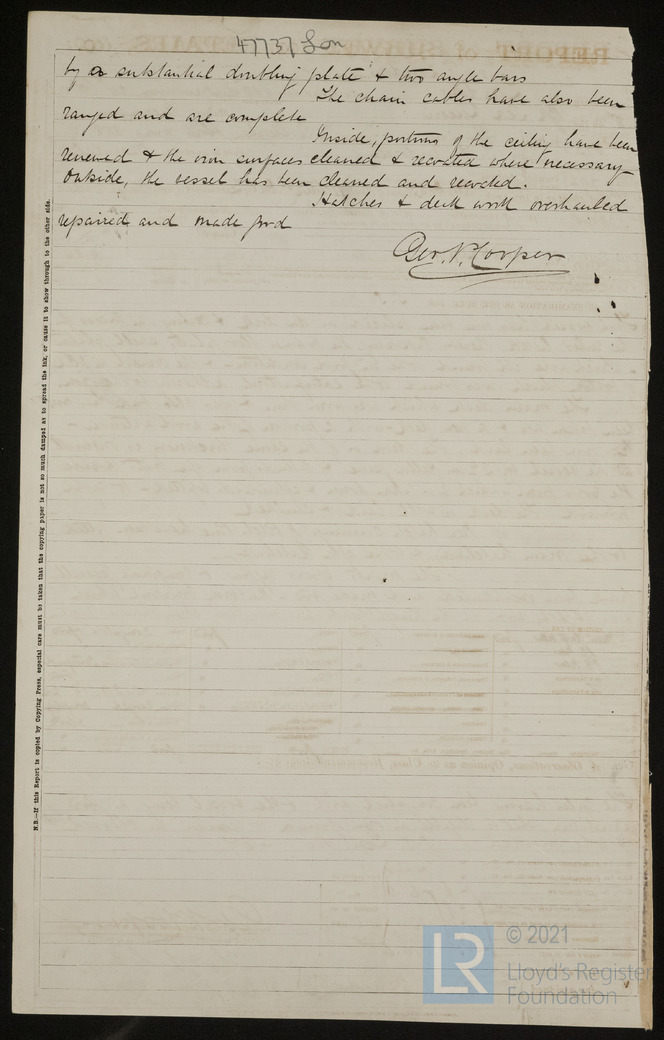 47737 Lon
by a substantial doubling plate & two angle bars
The chain cables have also been
ranged and are complete
Inside, portions of the ceiling have been
renewed & the iron surfaces cleaned & recoated where necessary
Outside, the vessel has been cleaned and recoated.
Hatches & deck work overhauled
repaired and made good
Geo. P. Cooper
N.B.—If this Report is copied by Copying Press, especial care must be taken that the copying paper is not so much damped as to spread the ink, or cause it to show through to the other side.
LR
© 2021
Lloyd's Register
Foundation